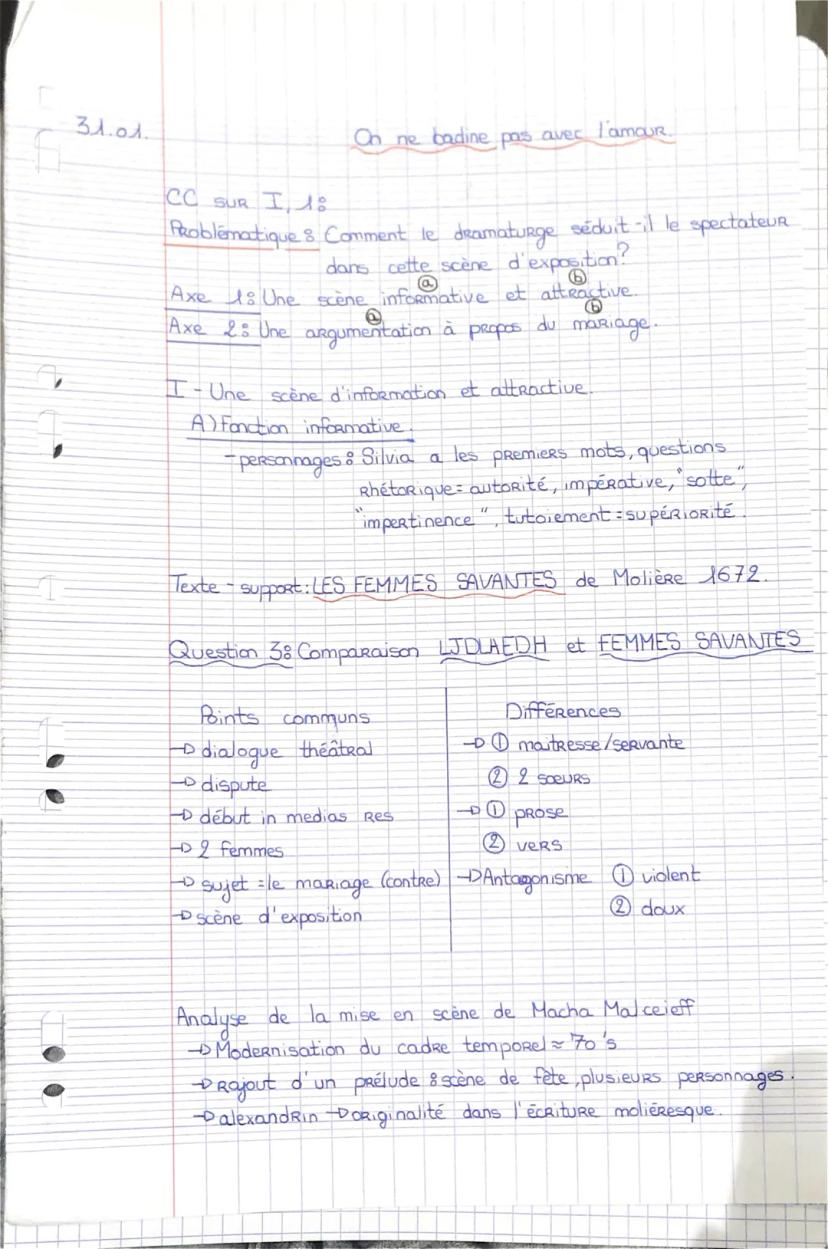 31.01.
On ne badine pas avec l'amour.
CC SUR I, 1:
Problématique : Comment le dramaturge séduit-il le spectateur
dans cette scène d'exposition?
a b
Axe 1: Une scène informative et attractive.
a b
Axe 2: Une argumentation à propos du mariage.
I - Une scène d'information et attractive.
A) Fonction informative.
- personnages : Silvia a les premiers mots, questions
Rhétorique = autorité, impérative, "sotte",
"impertinence", tutoiement = supériorité.
Texte - support : LES FEMMES SAVANTES de Molière 1672.
Question 3: Comparaison LJDLAEDH et FEMMES SAVANTES
Points communs
→ dialogue théâtral
→ dispute
→ début in medias res
→ 2 femmes
→ sujet = le mariage (contre)
→ scène d'exposition
Différences
→ ① maitresse/servante
② 2 sœurs
→ ① prose
② vers
→ Antagonisme ① violent
② doux
Analyse de la mise en scène de Macha Malceieff
→ Modernisation du cadre temporel ≈ 70's
→ Rajout d'un prélude : scène de fête, plusieurs personnages.
→ alexandrin → originalité dans l'écriture moliéresque.